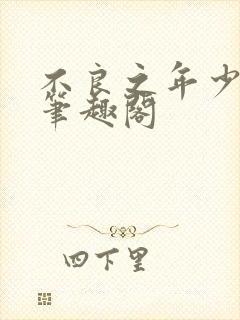 不良之年少
筆趣閣
四下里